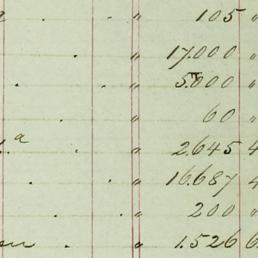 " 105 "
" 17.000 "
" 5.000 "
" 60 "
a " 2.645 4
" 16.687 4
" 200 "
en " 1.526 6